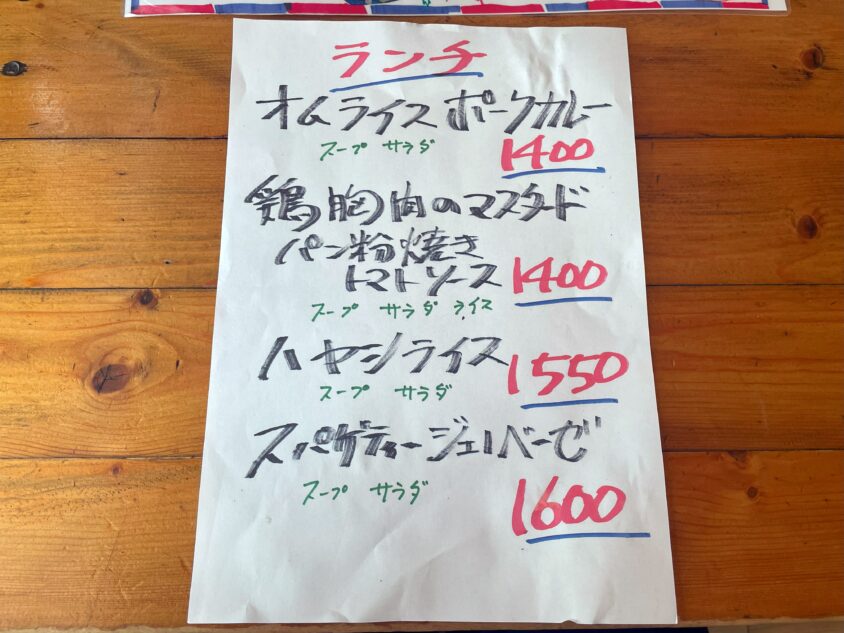 ランチ
オムライス ポークカレー
スープ サラダ 1400
鶏胸肉のマスタード
パン粉焼き
トマトソース 1400
スープ サラダ ライス
ハヤシライス 1550
スープ サラダ
スパゲティージェノベーゼ
スープ サラダ
1600